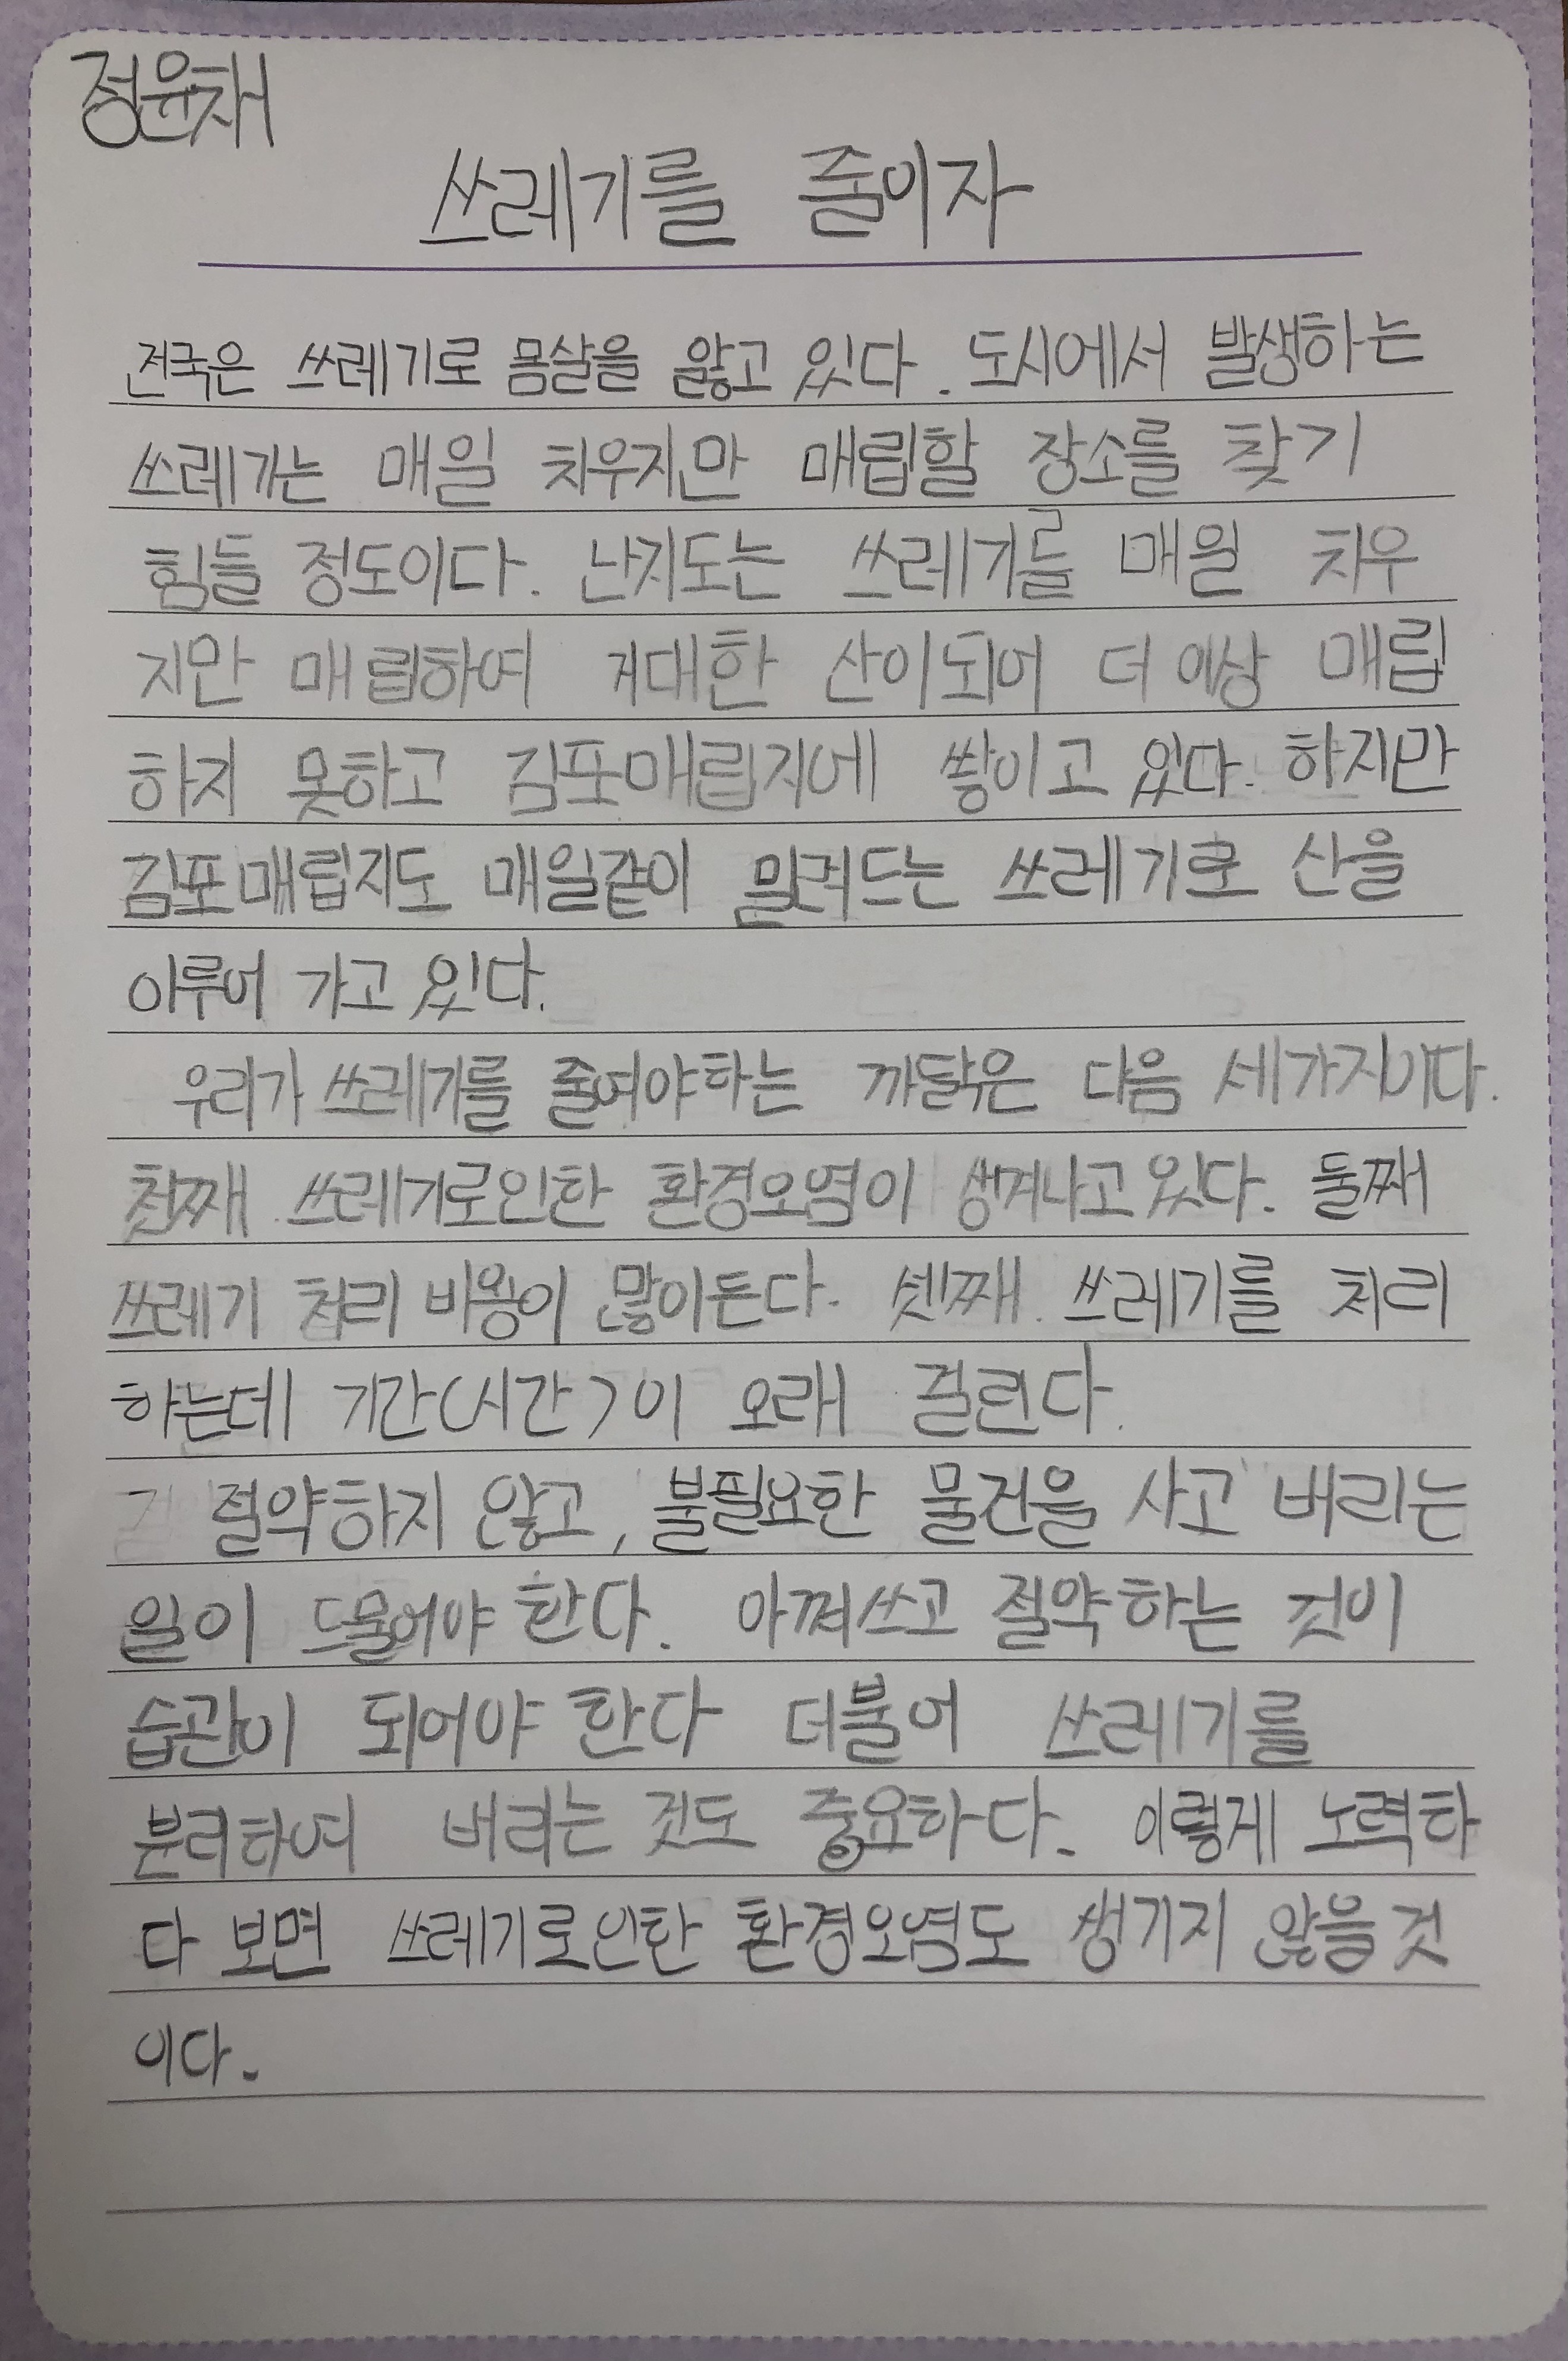 정윤채
쓰레기를 줄이자
전국은 쓰레기로 몸살을 앓고 있다. 도시에서 발생하는
쓰레기는 매일 치우지만 매립할 장소를 찾기
힘들 정도이다. 난지도는 쓰레기를 매일 치우
지만 매립하여 거대한 산이되어 더 이상 매립
하지 못하고 김포매립지에 쌓이고 있다. 하지만
김포매립지도 매일같이 밀려드는 쓰레기로 산을
이루어 가고 있다.
우리가 쓰레기를 줄여야하는 까닭은 다음 세가지이다.
첫째 쓰레기로인한 환경오염이 생겨나고 있다. 둘째
쓰레기 처리 비용이 많이든다. 셋째. 쓰레기를 처리
하는데 기간(시간)이 오래 걸린다.
절약하지 않고, 불필요한 물건을 사고 버리는
일이 드물어야 한다. 아껴쓰고 절약하는 것이
습관이 되어야 한다 더불어 쓰레기를
분리하여 버리는 것도 중요하다. 이렇게 노력하
다 보면 쓰레기로인한 환경오염도 생기지 않을것
이다.